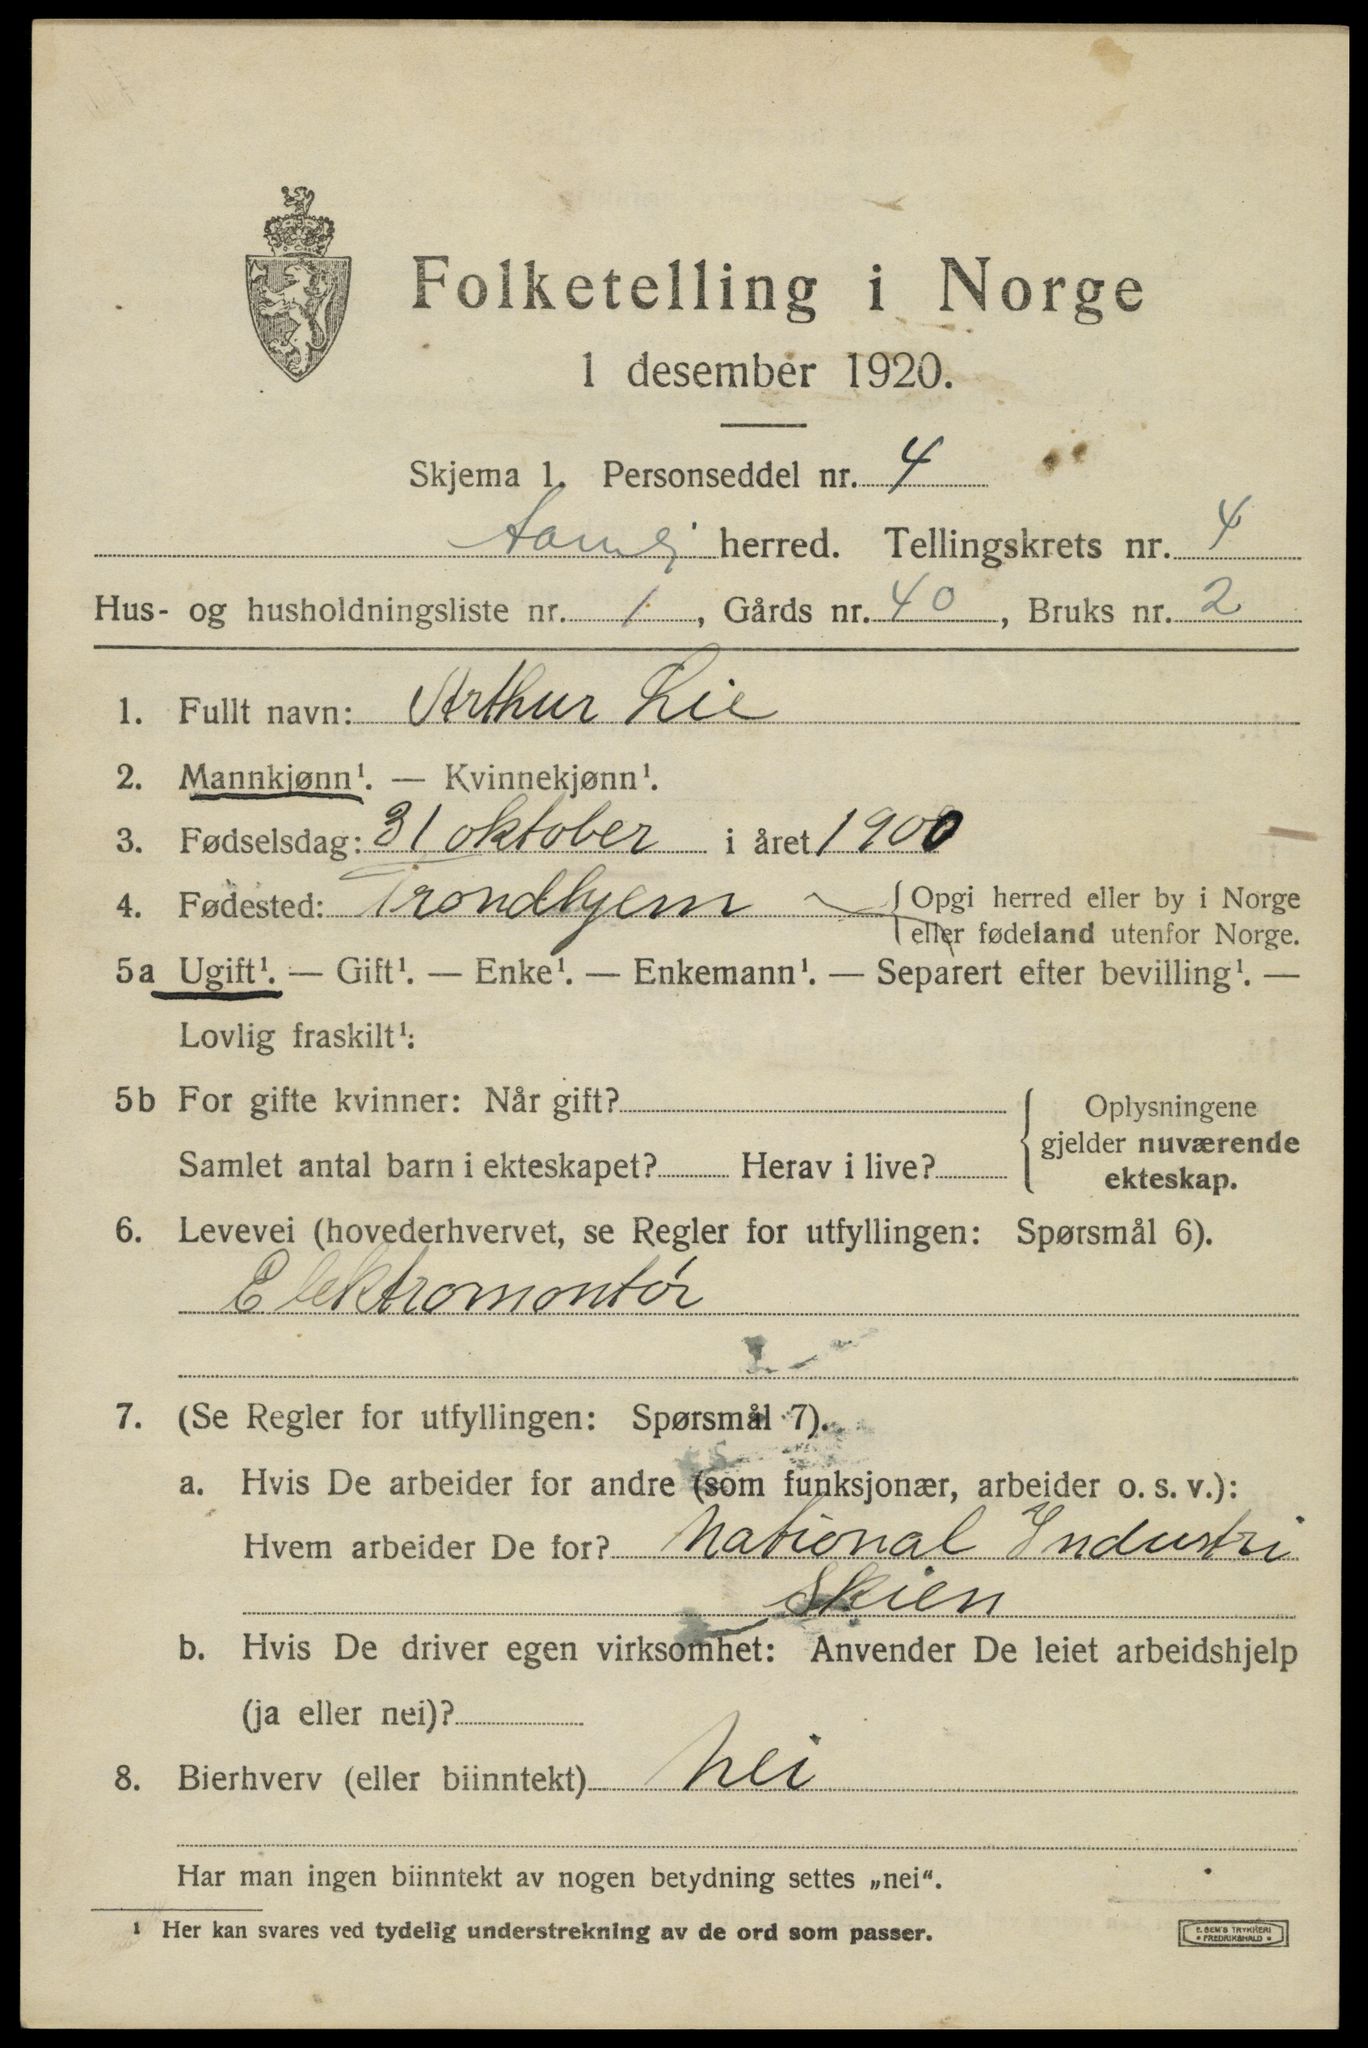 Folketelling i Norge
1 desember 1920.
Skjema 1. Personseddel nr. 4
herred. Tellingskrets nr. 4
Hus- og husholdningsliste nr. 1, Gårds nr. 40, Bruks nr. 2
1. Fullt navn: Arthur Lie
2. Mannkjønn¹. — Kvinnekjønn¹.
3. Fødselsdag: 31 oktober i året 1900
4. Fødested: Trondhjem { Opgi herred eller by i Norge
eller fødeland utenfor Norge.
5a Ugift¹. — Gift¹. — Enke¹. — Enkemann¹. — Separert efter bevilling¹. —
Lovlig fraskilt¹:
5b For gifte kvinner: Når gift?
Samlet antal barn i ekteskapet? Herav i live?
{ Oplysningene
gjelder nuværende
ekteskap.
6. Levevei (hovederhvervet, se Regler for utfyllingen: Spørsmål 6).
Elektromontør
7. (Se Regler for utfyllingen: Spørsmål 7).
a. Hvis De arbeider for andre (som funksjonær, arbeider o. s. v.):
Hvem arbeider De for? National Industri
Skien
b. Hvis De driver egen virksomhet: Anvender De leiet arbeidshjelp
(ja eller nei)?
8. Bierhverv (eller biinntekt) Nei
Har man ingen biinntekt av nogen betydning settes „nei“.
¹ Her kan svares ved tydelig understrekning av de ord som passer.
E. SEM'S TRYKKERI
• FREDRIKSHALD •